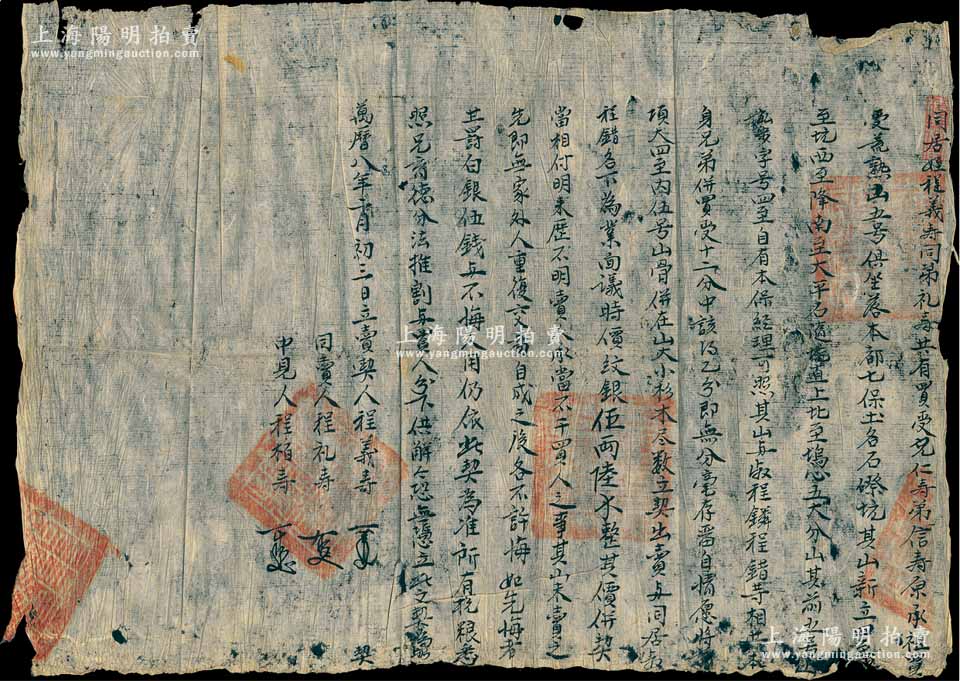 同居姪程義寿同弟礼寿共有買受兄仁寿弟信寿原承祖
受荒熟山五号俱坐落本都七保土名石際坑其山新立四至東
至坑西至降南至大平石隨塝直上北至塢心五大分山其前山
字号四至自有本保經理可照其山与叔程鏻程錯等相共本
身兄弟併買受十二分中該得乙分即無分毫存畱自情愿將
項大四至内伍号山骨併在山大小杉木尽数立契出賣与同居叔
程錯名下為業面議時價紋銀伍両陸錢整其價併契
當相付明来歴不明賣人承當不干買人之事其山未賣之
先即無家外人重復交易自成之後各不許悔如先悔者
甘罰白銀伍錢与不悔人用仍依此契為准所有税粮悉
照兄分法推割与買人分下供解今恐無憑立此文契為照
萬曆八年月初三日立賣契人程義寿 契
同賣人程礼寿
中見人程栢寿
上海陽明拍賣
www.yangmingauction.com
上海陽明拍賣
www.yangmingauction.com
上海陽明拍賣
www.yangmingauction.com